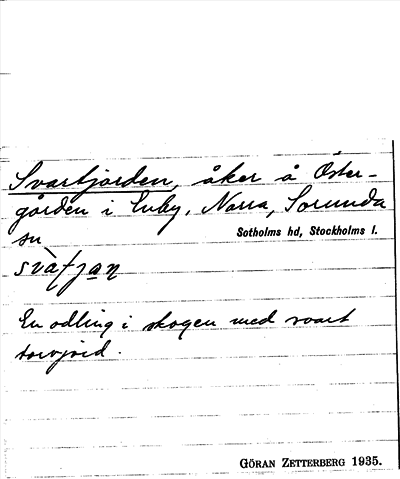 Svartjorden, åker å Öster-
gården i Enby, Norra, Sorunda
sn
Sotholms hd, Stockholms l.
En odling i skogen med svart
torvjord.
GÖRAN ZETTERBERG 1935.